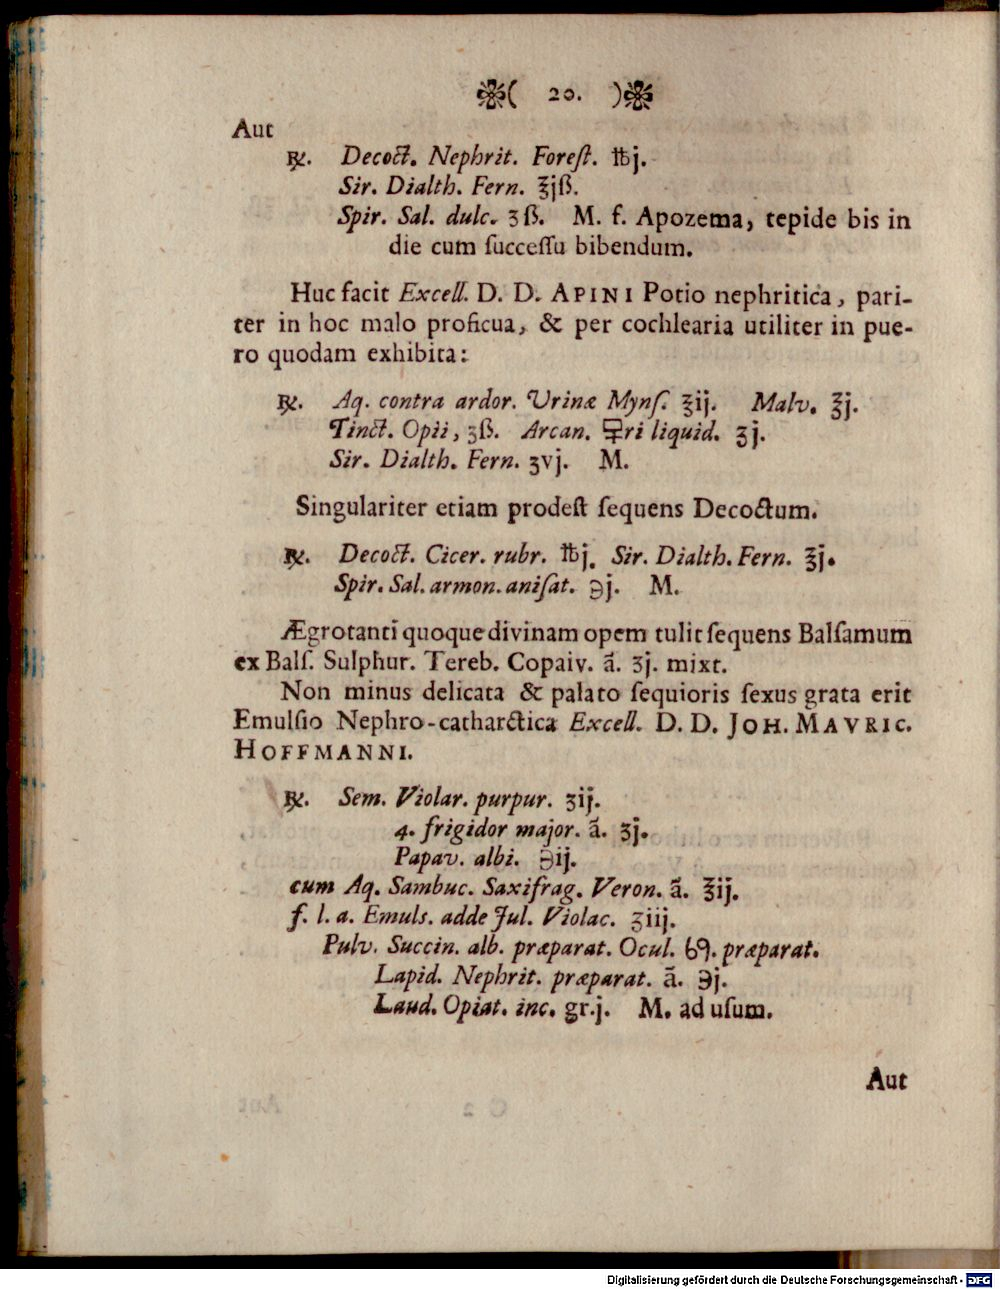 ( 20. )
Aut
℞. Decoct. Nephrit. Foreſt. ℔j.
Sir. Dialth. Fern. ℥jß.
Spir. Sal. dulc. ʒß. M. f. Apozema, tepide bis in
die cum ſucceſſu bibendum.
Huc facit Excell. D. D. APINI Potio nephritica, pari-
ter in hoc malo proficua, & per cochlearia utiliter in pue-
ro quodam exhibita:
℞. Aq. contra ardor. Urinæ Mynſ. ℥ij. Malv. ℥j.
Tinct. Opii, ʒß. Arcan. 🜠ri liquid. ʒj.
Sir. Dialth. Fern. ʒvj. M.
Singulariter etiam prodeſt ſequens Decoctum.
℞. Decoct. Cicer. rubr. ℔j. Sir. Dialth. Fern. ℥j.
Spir. Sal. armon. aniſat. ℈j. M.
Ægrotanti quoque divinam opem tulit ſequens Balſamum
ex Balſ. Sulphur. Tereb. Copaiv. ā. ʒj. mixt.
Non minus delicata & palato ſequioris ſexus grata erit
Emulſio Nephro-cathartica Excell. D. D. JOH. MAVRIC.
HOFFMANNI.
℞. Sem. Violar. purpur. ʒij.
4. frigidor major. ā. ʒj.
Papav. albi. ℈ij.
cum Aq. Sambuc. Saxifrag. Veron. ā. ℥ij.
f. l. a. Emuls. adde Jul. Violac. ʒiij.
Pulv. Succin. alb. præparat. Ocul. ♋. præparat.
Lapid. Nephrit. præparat. ā. ℈j.
Laud. Opiat. inc. gr. j. M. ad uſum.
Aut
Digitalisierung gefördert durch die Deutsche Forschungsgemeinschaft - DFG